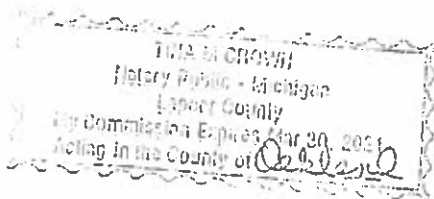 TINA M CROWN
Notary Public - Michigan
Lapeer County
My Commission Expires Mar 30, 2021
Acting in the County of Oakland